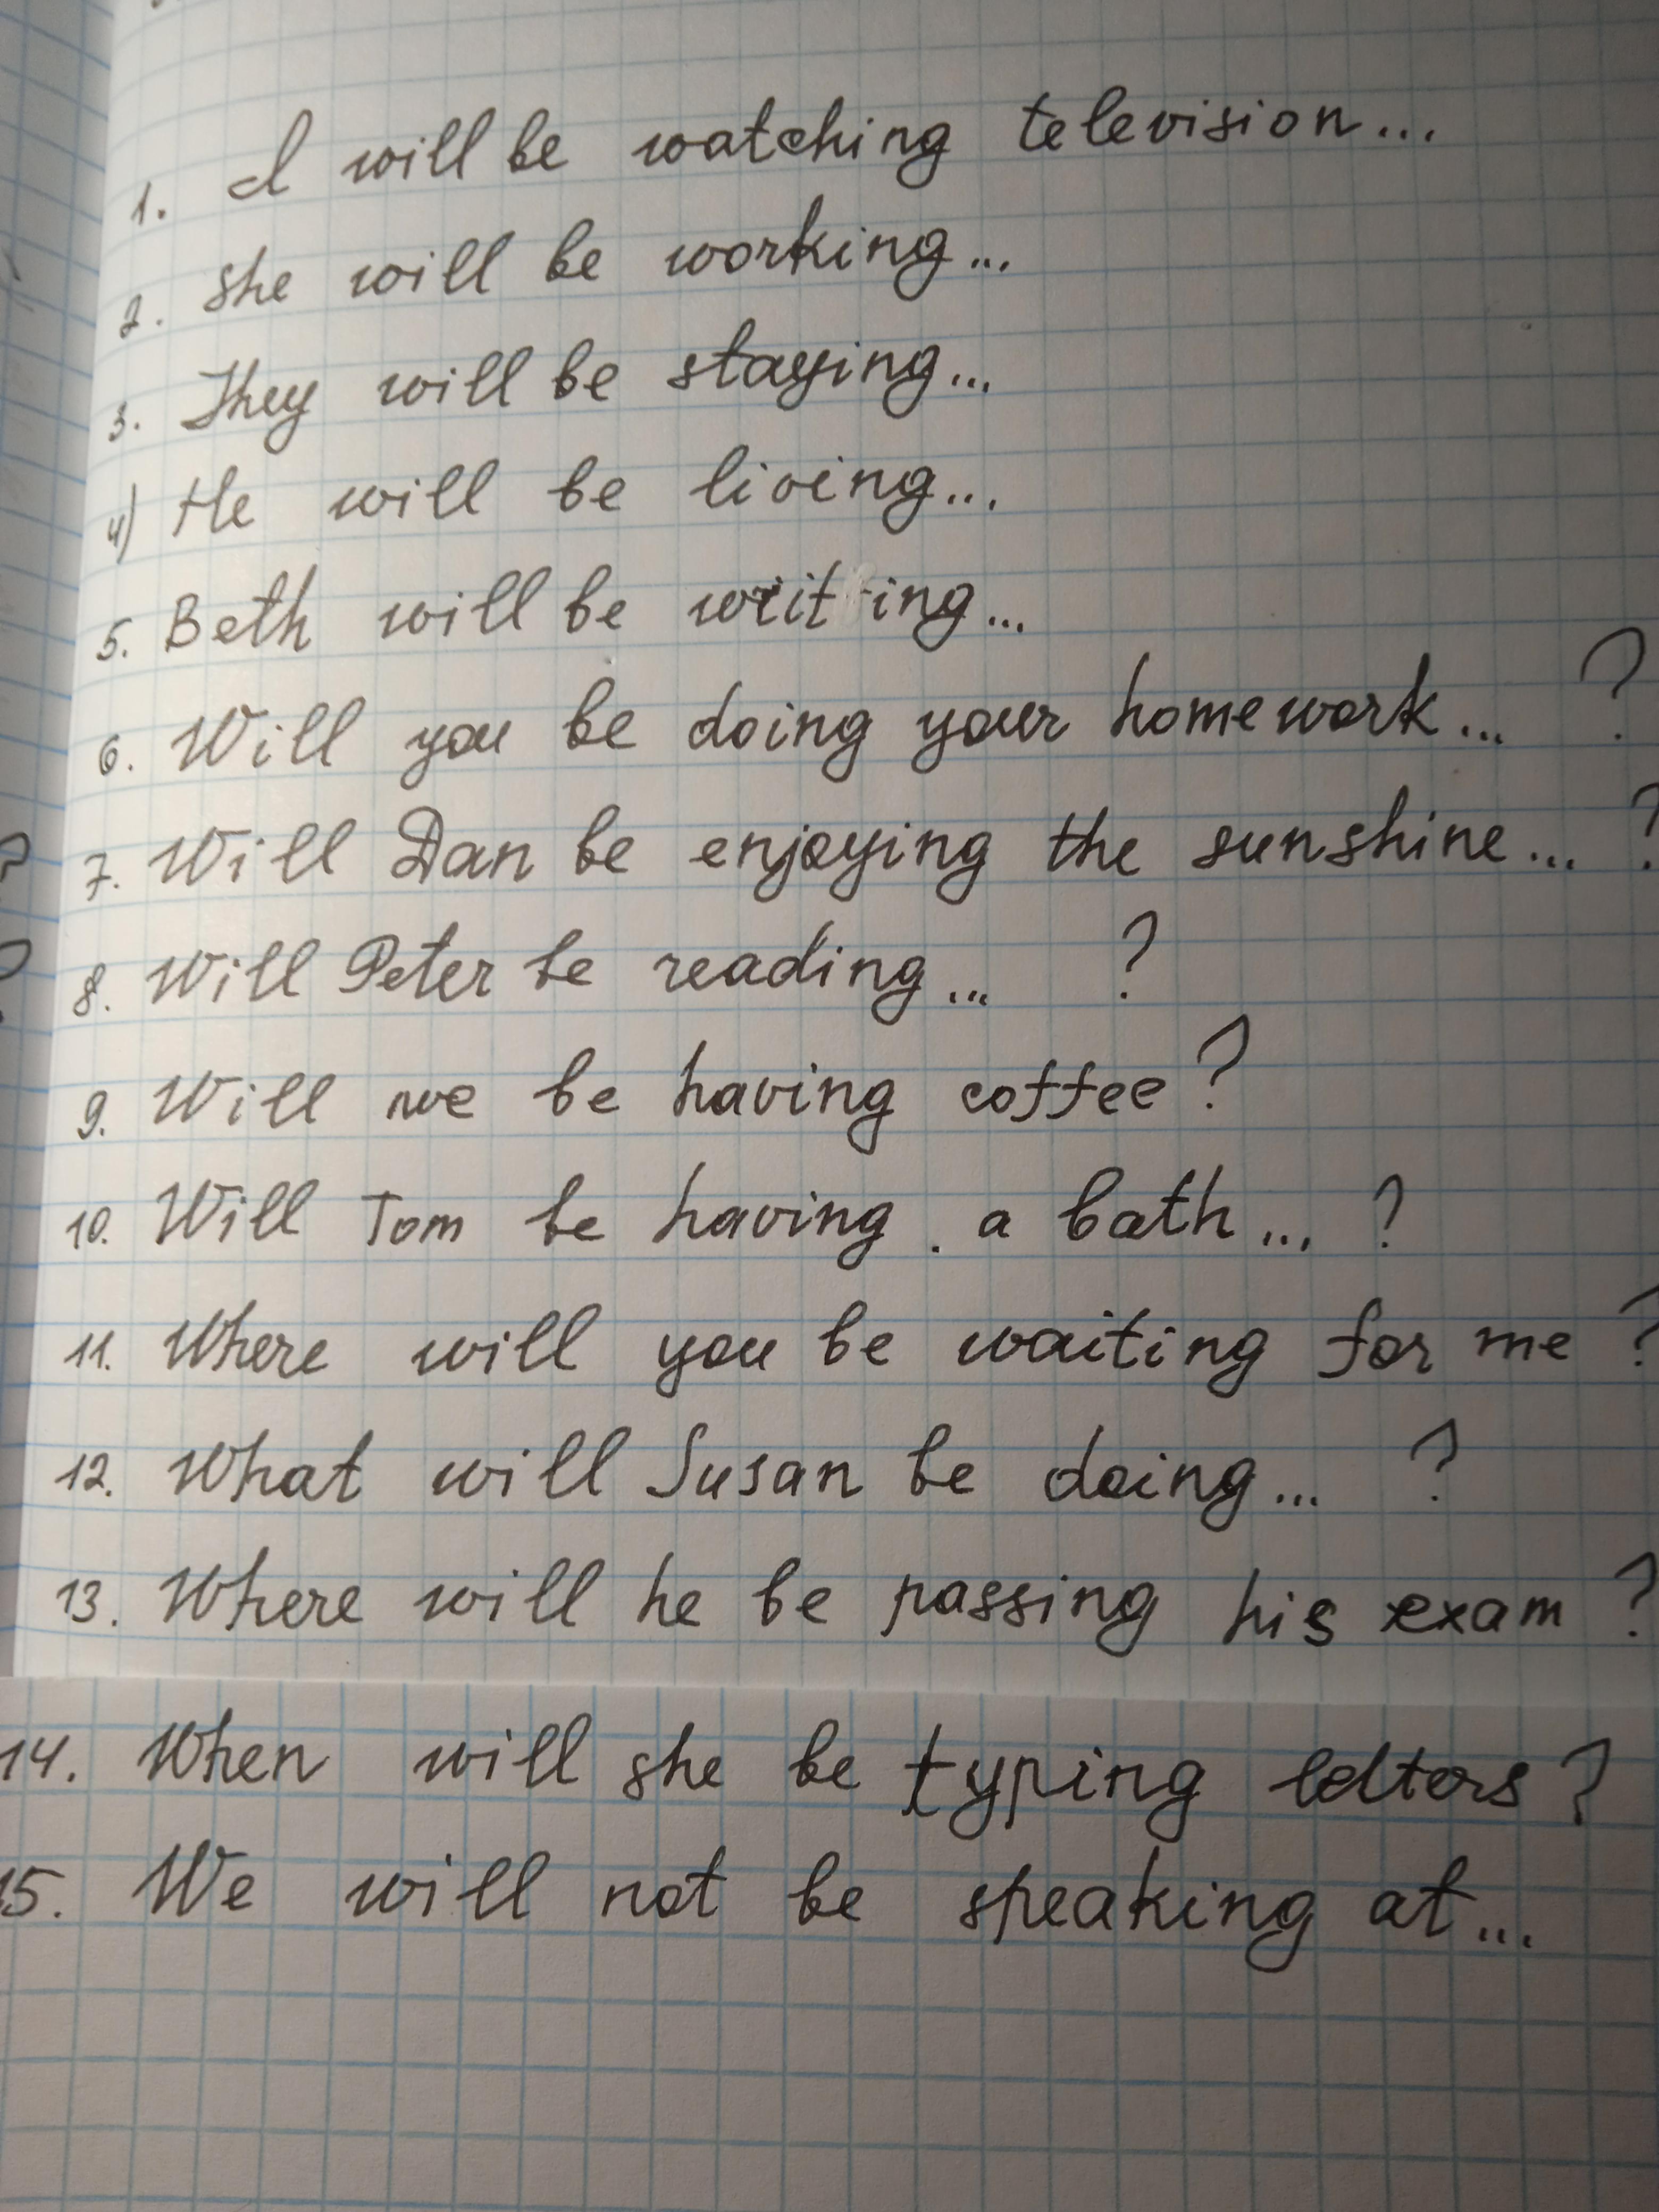 1. I will be watching television...
2. She will be working...
3. They will be staying...
4) He will be living...
5. Beth will be writing...
6. Will you be doing your homework... ?
7. Will Dan be enjoying the sunshine... ?
8. Will Peter be reading... ?
9. Will we be having coffee?
10. Will Tom be having . a bath... ?
11. Where will you be waiting for me ?
12. What will Susan be doing... ?
13. Where will he be passing his exam ?
14. When will she be typing letters ?
15. We will not be speaking at...